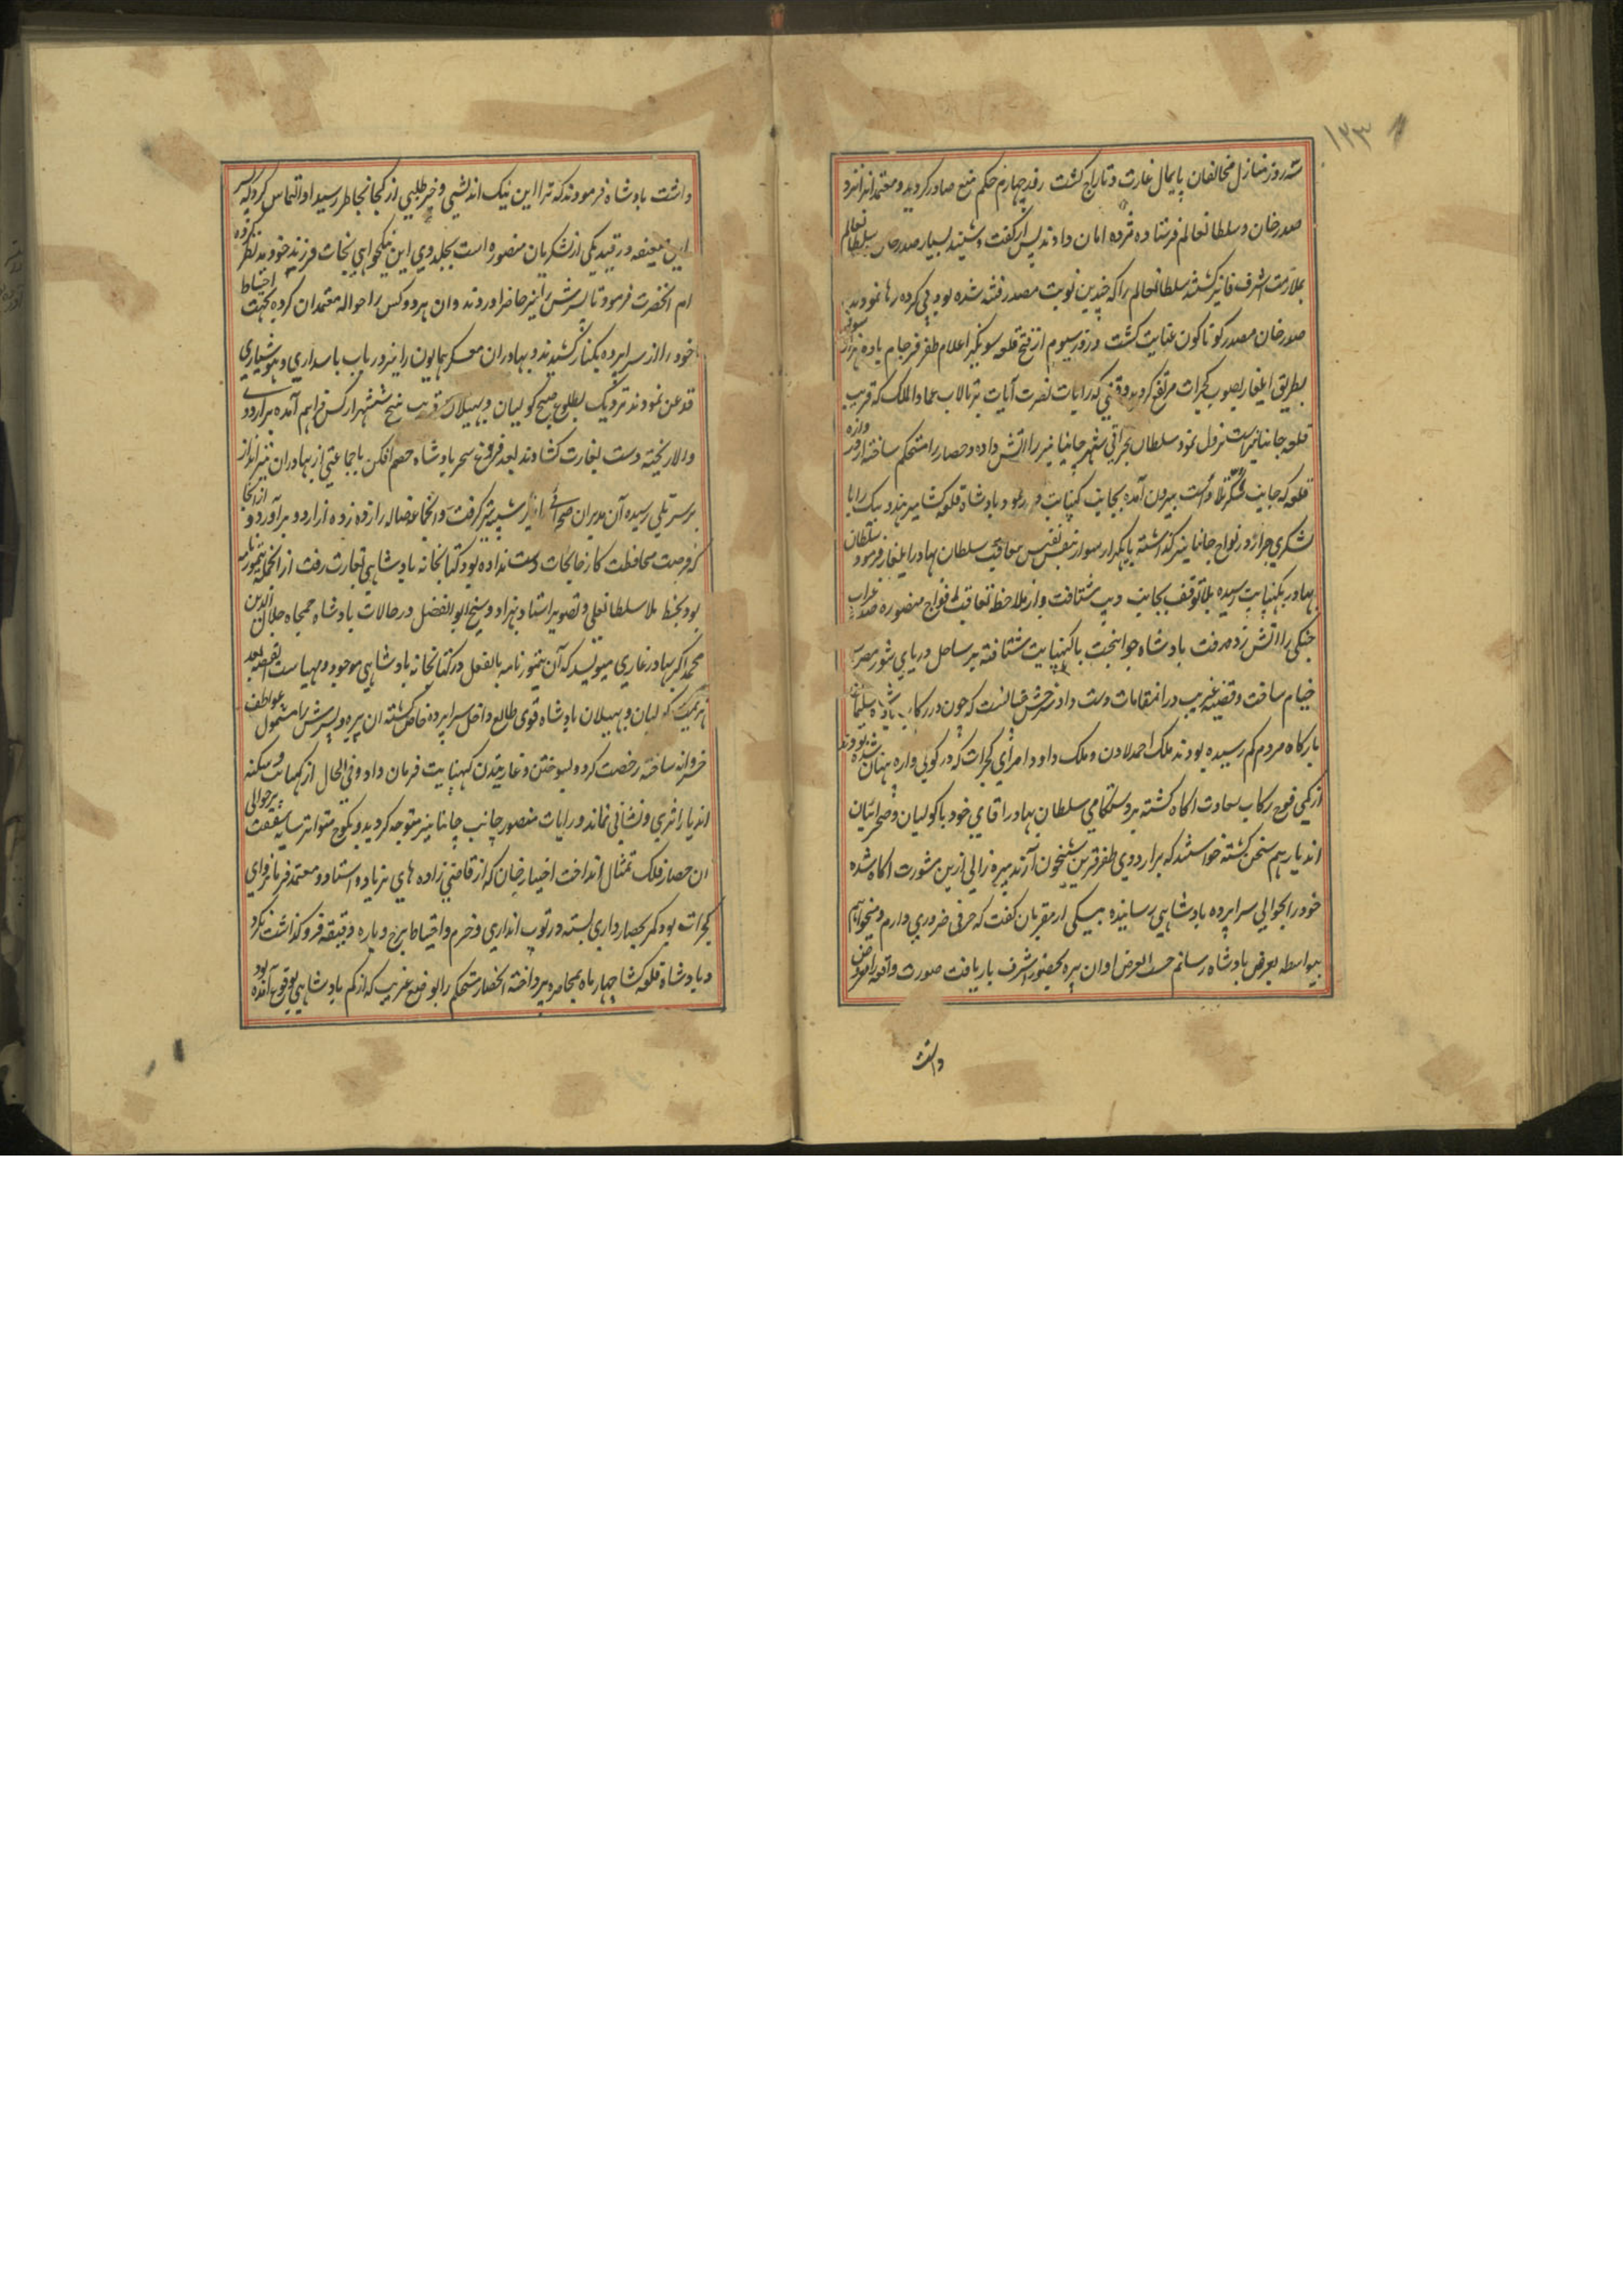 ۱۲۳
سه روز منازل مخالفان پایمال غارت و تاراج گشت روز چهارم حکم منع صادر گردید و معتمدان نزد
صدرخان و سلطانعالم فرستاده مژده امان دادند پس از گفت و شنید بسیار صدرخان سلطانعالم
بملازمت اشرف فایز گشته سلطانعالم را که چندین نوبت مصدر فتنه شده بود پی کرده رها نمودند
صدرخان مصدر گوناگون عنایت گشت و روز سیوم از فتح قلعه سونگیر اعلام ظفر فرجام با ده هزار سوار
بطریق ایلغار بصوب گجرات مرتفع گردید وقتی که رایات نصرت آیات بر تالاب عمادالملک که قریب
قلعه جانپانیر است نزول نمود سلطان گجراتی شهر جانپانیر را آتش داده و حصار را مستحکم ساخته از دروازه
قلعه که جانب است بیرون آمده بجانب کنپایت بدر رفته بود بادشاه قلعه کشا میر هندو بیک را با
لشکری جرار در نواح جانپانیر گذاشته با یکهزار سوار بنفس نفیس معاقب سلطان بهادر ایلغار فرمود سلطان
بهادر بکنپایت رسیده بلا توقف بجانب دیپ شتافت و از ملاحظه تعاقب افواج منصوره صد غراب
جنگی را آتش زده رفت بادشاه جوانبخت با کنپایت شتافته بر ساحل دریای شور مضرب
خیام ساخت و قضیه غریب در انمقامات دست داد شرحش چنانست که چون در رکاب بادشاه سلیمان
بارگاه مردم کم رسیده بودند ملک احمد لادن و ملک داود امرای گجرات که در کولی واره پنهان شده بودند
از کمی فوج رکاب سعادت اگاه گشته بدوستکامی سلطان بهادر اقای خود با کولیان و صحرائیان
اندیار هم سخن گشته خواستند که بر اردوی ظفر قرین شبخون آرند پیره زالی ازین مشورت اگاه شده
خود را بحوالی سراپرده بادشاهی رسانیده بیکی از مقربان گفت که حرفی ضروری دارم و میخواهم
بیواسطه بعرض بادشاه رسانم حسب العرض او ان پیره بحضور اشرف باریافت صورت واقعه را معروض
داشت
داشت بادشاه فرمودند که ترا این نیک اندیشی و خیرطلبی از کجا بخاطر رسید او التماس کرد که پسر
این ضعیفه در قید یکی از لشکریان منصوره است بجلدوی این نیکخواهی نجات فرزند خود مد نظر کرده
ام انحضرت فرمود تا پسرش را نیز حاضر اوردند و ان هر دو کس را حواله معتمدان کرده بجهت احتیاط
خود را از سراپرده بکنار کشیدند و بهادران معسکر همایون را نیز در باب پاسداری و هوشیاری
قدغن نمودند نزدیک بطلوع صبح کولیان و بهیلان قریب پنج شش هزار کس فراهم آمده بر اردوی
والا ریخته دست بغارت کشادند بعد فروغ سحر بادشاه خصم افکن با جماعتی از بهادران تیرانداز
بر سر تلی رسیده آن مدبران صحرائی را از شیبه تیر گرفت و انجماعه ضاله را زده زده از اردو برآورد و از انجا
که فرصت محافظت کارخانجات دست نداده بود کتابخانه بادشاهی بغارت رفت از انجمله تیمورنامه
بود بخط ملا سلطانعلی و تصویر استاد بهزاد و شیخ ابوالفضل در حالات بادشاه جمجاه جلال الدین
محمد اکبر بهادر غازی مینویسد که آن تیمورنامه بالفعل در کتابخانه بادشاهی موجود و مهیاست القصه بعد
هزیمت کولیان و بهیلان بادشاه قوی طالع داخل سراپرده خاص گشته ان پیره و پسرش را مشمول عواطف
خسروانه ساخته رخصت کرد و بسوختن و غارتیدن کنپایت فرمان داد و فی الحال از کنپایت و سکنه
اندیار اثری و نشانی نماند و رایات منصور جانب جانپانیر متوجه گردید و بکوچ متواتر سایه شفقت بر حوالی
ان حصار فلک تمثال انداخت اختیار خان که از قاضی زاده های نریاد و استاد و معتمد فرمانروای
گجرات بود کمر بحصارداری بسته در توپ اندازی و حزم و احتیاط برج و باره دقیقه فروگذاشت نکرد
و بادشاه قلعه کشا چهار ماه بمحاصره پرداخته انحصار مستحکم را بوضع غریب که از کم بادشاهی بوقوع آمده بود